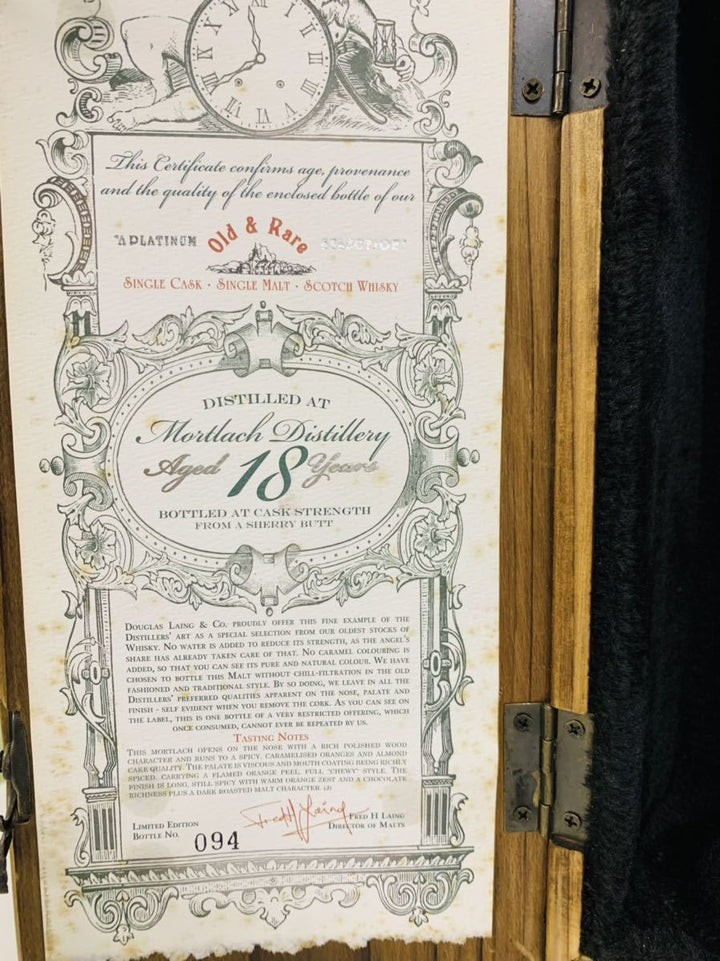 XII I II III IIII V VI VII VIII IX X XI
This Certificate confirms age, provenance
and the quality of the enclosed bottle of our
"A PLATINUM Old & Rare SELECTION"
SINGLE CASK · SINGLE MALT · SCOTCH WHISKY
DISTILLED AT
Mortlach Distillery
Aged 18 Years
BOTTLED AT CASK STRENGTH
FROM A SHERRY BUTT
DOUGLAS LAING & CO. PROUDLY OFFER THIS FINE EXAMPLE OF THE
DISTILLERS' ART AS A SPECIAL SELECTION FROM OUR OLDEST STOCKS OF
WHISKY. NO WATER IS ADDED TO REDUCE ITS STRENGTH, AS THE ANGEL'S
SHARE HAS ALREADY TAKEN CARE OF THAT. NO CARAMEL COLOURING IS
ADDED, SO THAT YOU CAN SEE ITS PURE AND NATURAL COLOUR. WE HAVE
CHOSEN TO BOTTLE THIS MALT WITHOUT CHILL-FILTRATION IN THE OLD
FASHIONED AND TRADITIONAL STYLE. BY SO DOING, WE LEAVE IN ALL THE
DISTILLERS' PREFERRED QUALITIES APPARENT ON THE NOSE, PALATE AND
FINISH - SELF EVIDENT WHEN YOU REMOVE THE CORK. AS YOU CAN SEE ON
THE LABEL, THIS IS ONE BOTTLE OF A VERY RESTRICTED OFFERING, WHICH
ONCE CONSUMED, CANNOT EVER BE REPEATED BY US.
TASTING NOTES
THIS MORTLACH OPENS ON THE NOSE WITH A RICH POLISHED WOOD
CHARACTER AND RUNS TO A SPICY, CARAMELISED ORANGES AND ALMOND
CAKE QUALITY. THE PALATE IS VISCOUS AND MOUTH COATING BEING RICHLY
SPICED, CARRYING A FLAMED ORANGE PEEL, FULL "CHEWY" STYLE. THE
FINISH IS LONG, STILL SPICY WITH WARM ORANGE ZEST AND A CHOCOLATE
RICHNESS PLUS A DARK ROASTED MALT CHARACTER. (J)
Fred H Laing
LIMITED EDITION
BOTTLE NO. 094
FRED H LAING
DIRECTOR OF MALTS